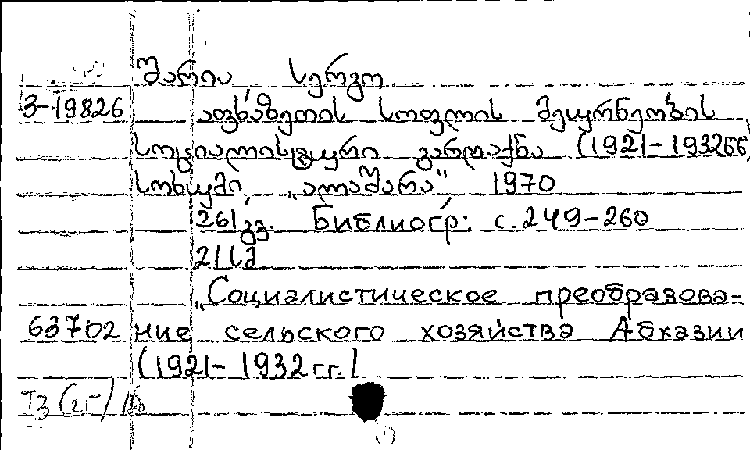 შარია, სერგო
3-19826 აფხაზეთის სოფლის მეურნეობის
სოციალისტური გარდაქმნა (1921-1932წწ)
სოხუმი, „ალაშარა" 1970
261გვ. Библиогр: с. 249-260
„Социалистическое преобразова-
63702 ние сельского хозяйства Абхазии
(1921-1932 гг.)